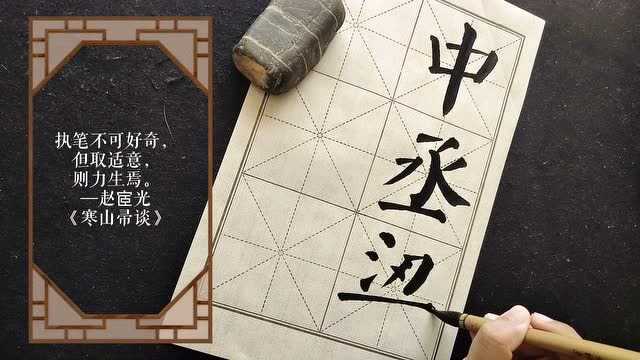 执笔不可好奇，
但取适意，
则力生焉。
—赵宧光
《寒山帚谈》
中
丞